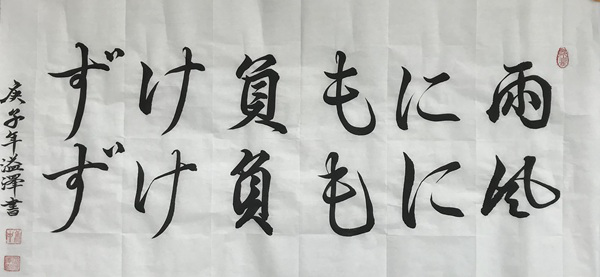 雨にも負けず
風にも負けず
庚子年溢澤書